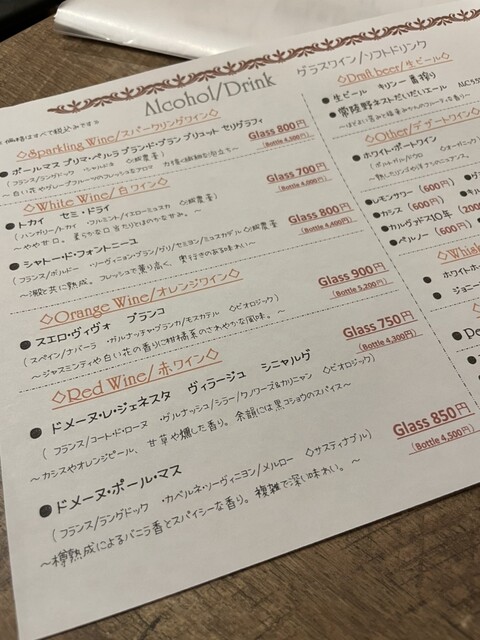 Alcohol/Drink グラスワイン/ソフトドリンク
※価格はすべて税込みです※
◇Sparkling Wine/スパークリングワイン◇
● ポールマス プリマ・ペルラ ブランド・ブラン ブリュット セリグラフィ
Glass 800円
(Bottle 4,500円)
◇White Wine/白ワイン◇
● トカイ セミ・ドライ
Glass 700円
～やや甘口。柔らかな口当たりとほのかな甘み。～
● シャトー・ド・フォントニーユ
Glass 800円
(Bottle 4,400円)
～澱と共に熟成。フレッシュで薫り高く、奥行きのある味わい～
◇Orange Wine/オレンジワイン◇
● スエロ・ヴィヴォ ブランコ
Glass 900円
(Bottle 5,200円)
(スペイン/ナバーラ ・ガルナッチャ・ブランカ/モスカテル ◇ビオロジック)
～ジャスミンティや白い花の香りに柑橘系のさわやかな風味。～
◇Red Wine/赤ワイン◇
● ドメーヌ・レ・ジェネスタ ヴィラージュ シニャルグ
Glass 750円
(Bottle 4,300円)
(フランス/コート・ド・ローヌ ・グルナッシュ/シラー/クノワーズ&カリニャン ◇ビオロジック)
～カシスやオレンジピール、甘草や燻した香り。余韻には黒コショウのスパイス～
● ドメーヌ・ポール・マス
Glass 850円
(Bottle 4,500円)
(フランス/ラングドック ・カベルネ・ソーヴィニヨン/メルロー ◇サスティナブル)
～樽熟成によるバニラ香とスパイシーな香り。複雑で深い味わい。～
◇Draft beer/生ビール◇
● 生ビール キリン一番搾り
● 常陸野ネストだいだいエール
◇Other/デザートワイン
● ホワイト・ポートワイン
● レモンサワー (600円)
● カシス (600円)
● カルヴァドス10年 (200
● ペルノー (600円)
◇Whis
● ホワイトホ
● ジョニー